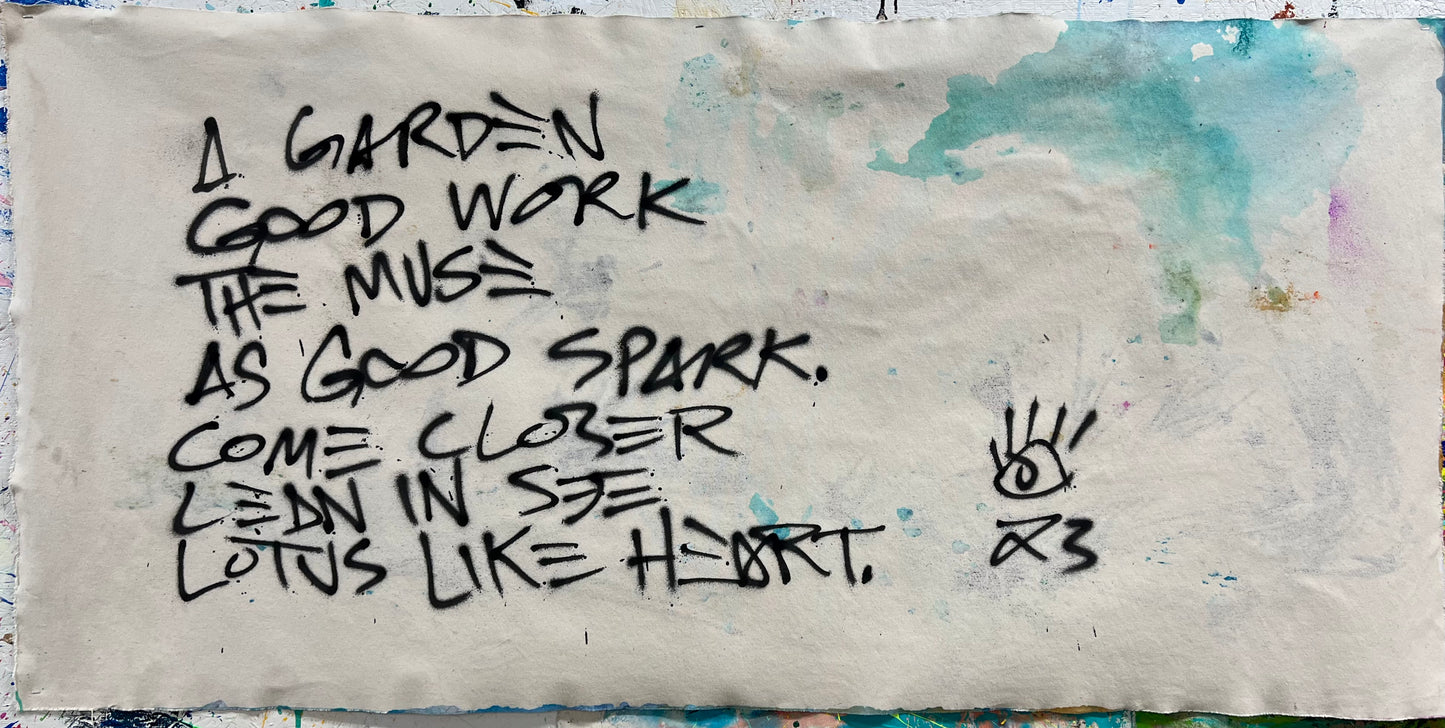 A GARDEN
GOOD WORK
THE MUSE
AS GOOD SPARK.
COME CLOSER
LEAN IN SEE
LOTUS LIKE HEART.
23